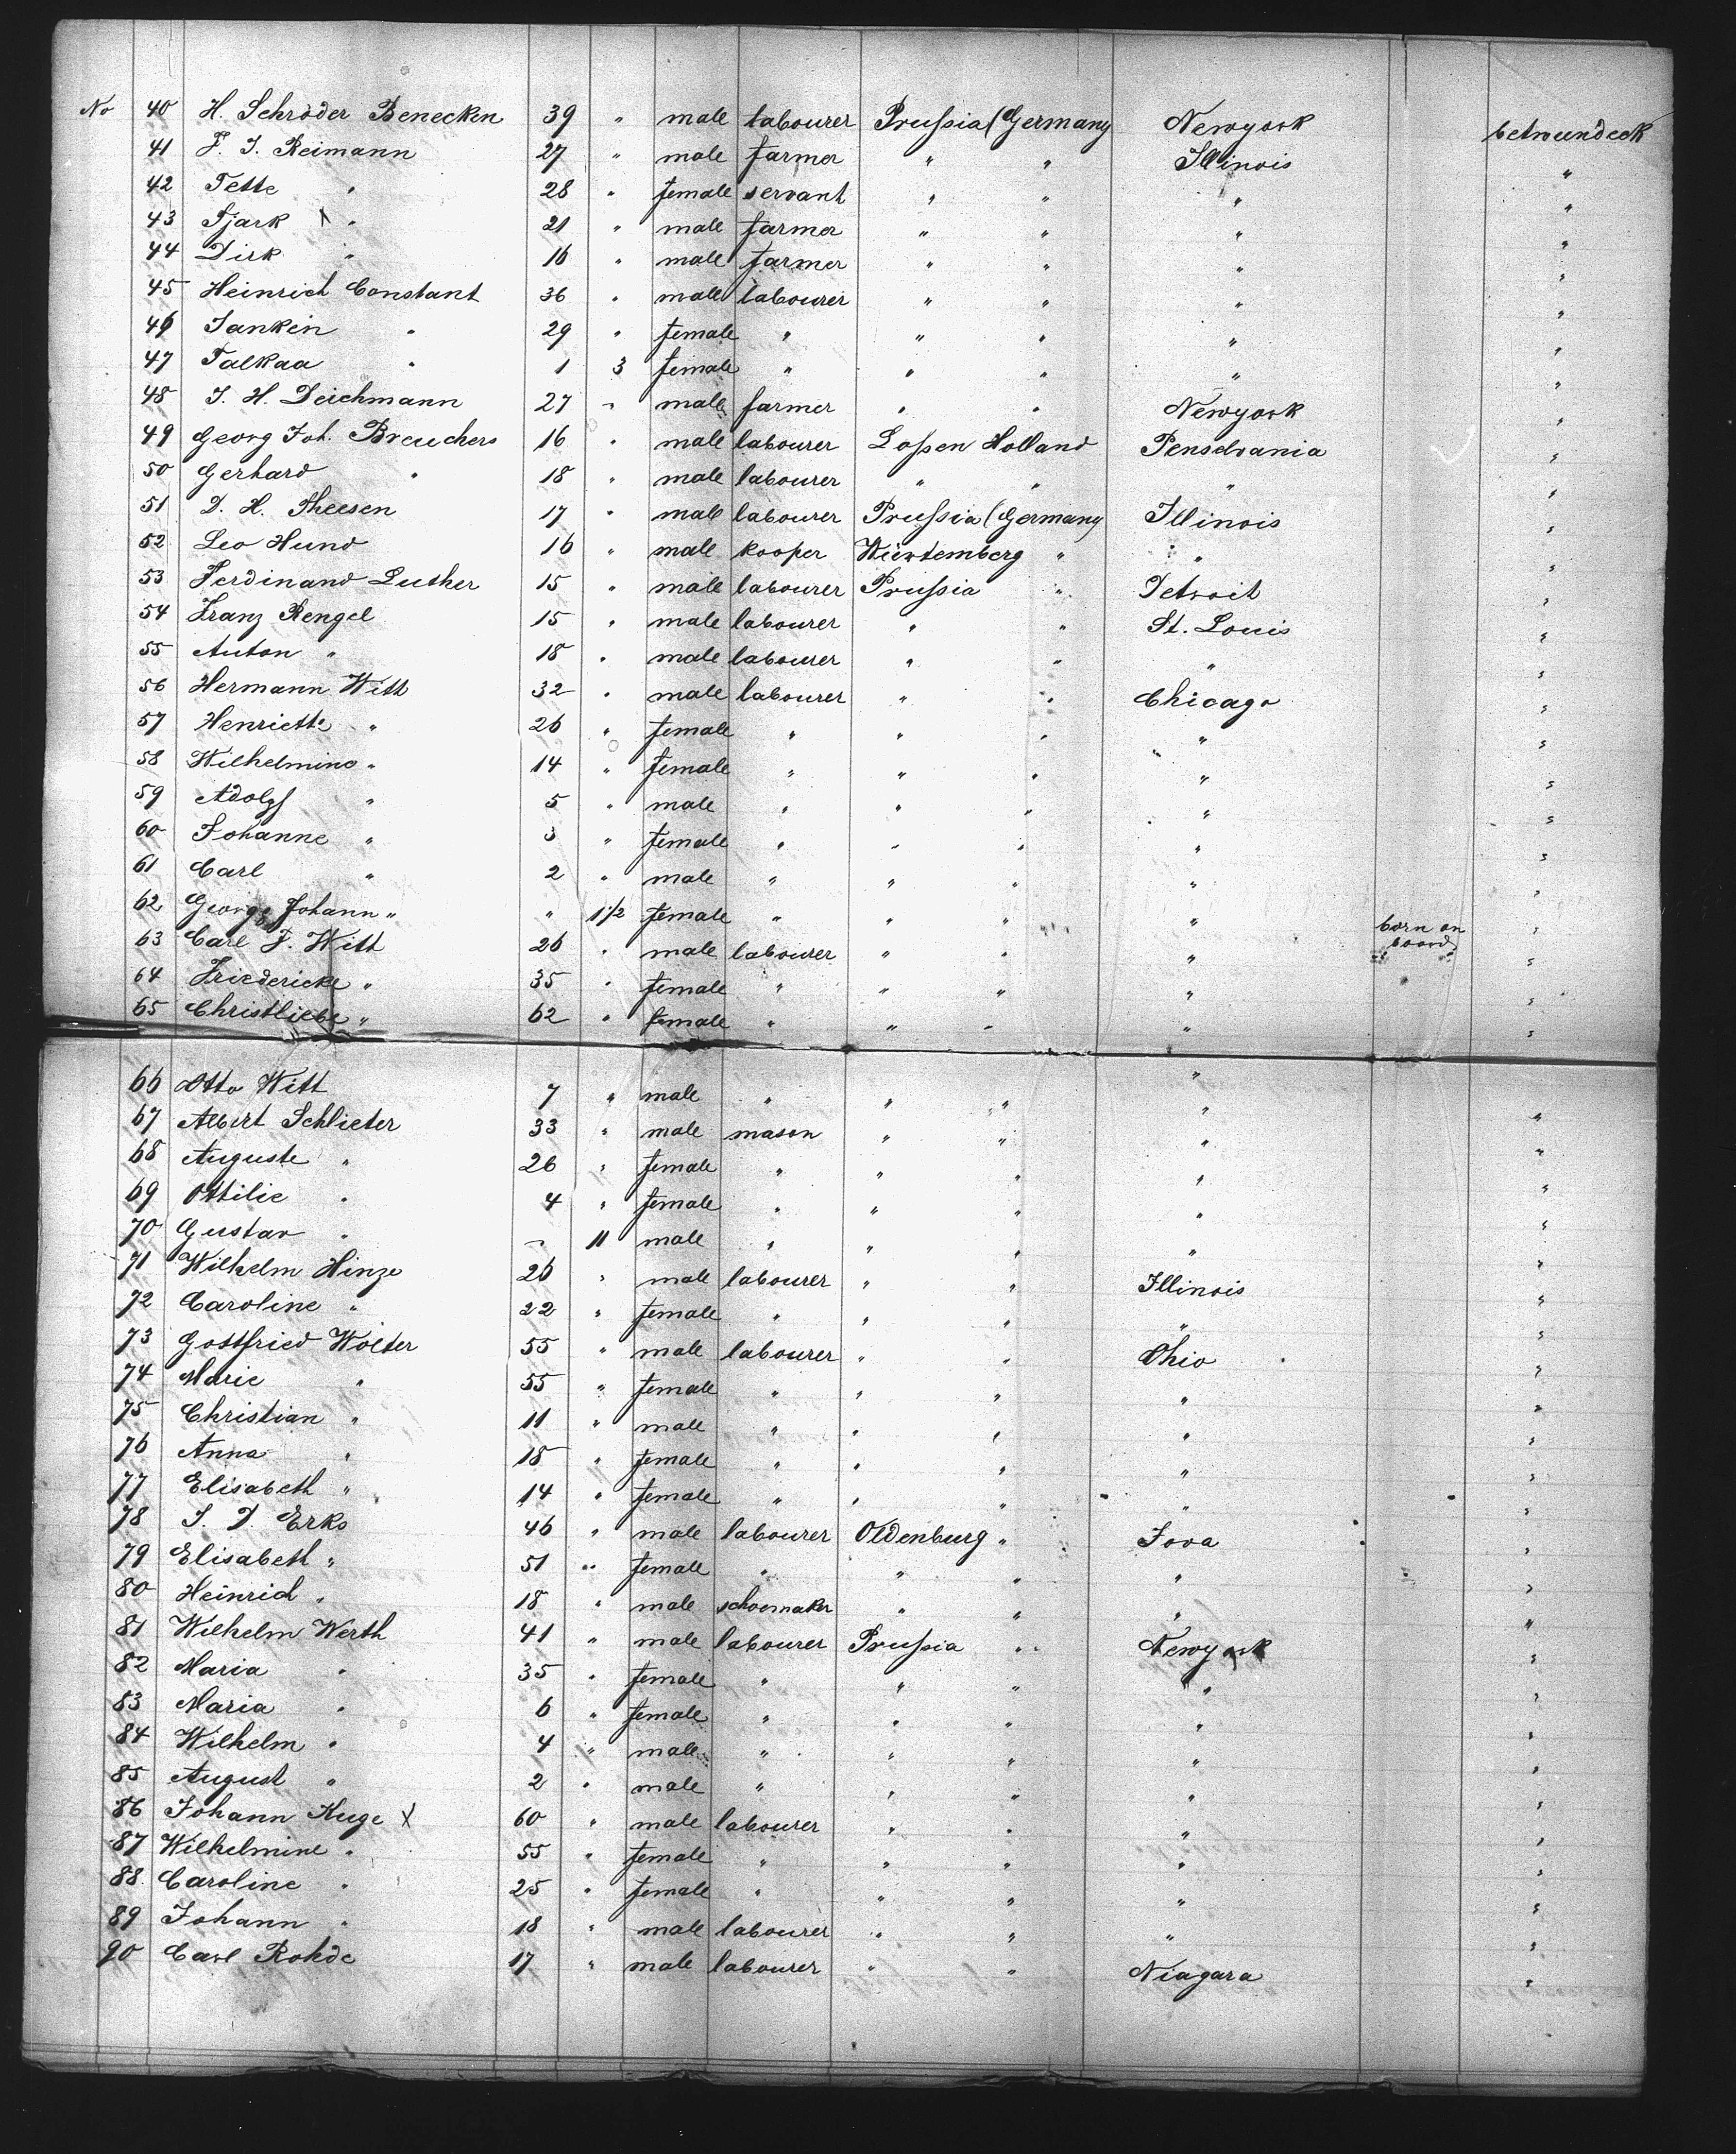 No 40 H. Schröder Benecken 39 " male labourer Prussia (Germany Newyork betweendeck
41 F. J. Reimann 27 " male farmer " " Illinois "
42 Tette " 28 " female servant " " " "
43 Tjark X " 21 " male farmer " " " "
44 Dirk " 16 " male farmer " " " "
45 Heinrich Constant 36 " male labourer " " " "
46 Jankein " 29 " female " " " " "
47 Talkaa " 1 3 female " " " " "
48 J. H. Deichmann 27 " male farmer " " Newyork "
49 Georg Joh. Breuchers 16 " male labourer Lossen Holland Penselvania "
50 Gerhard " 18 " male labourer " " " "
51 D. H. Theesen 17 " male labourer Prussia (Germany) Illinois "
52 Leo Hund 16 " male kooper Würtemberg " " "
53 Ferdinand Luther 15 " male labourer Prussia " Detroit "
54 Franz Rengel 15 " male labourer " " St. Louis "
55 Anton " 18 " male labourer " " " "
56 Hermann Witt 32 " male labourer " " Chicago "
57 Henriette " 26 " female " " " " "
58 Wilhelmine " 14 " female " " " " "
59 Adolf " 5 " male " " " " "
60 Johanne " 3 " female " " " " "
61 Carl " 2 " male " " " " "
62 George Johann " " 1 1/2 female " " " " born on board "
63 Carl F. Witt 26 " male labourer " " " "
64 Friedericke " 35 " female " " " " "
65 Christliebe " 62 " female " " " " "
66 Otto Witt 7 " male " " " "
67 Albert Schlieter 33 " male mason " " " "
68 Auguste " 26 " female " " " " "
69 Ottilie " 4 " female " " " " "
70 Gustav " " 11 male " " " " "
71 Wilhelm Hinze 26 " male labourer " " Illinois "
72 Caroline " 22 " female " " " " "
73 Gottfried Wolter 55 " male labourer " " Ohio "
74 Marie " 55 " female " " " " "
75 Christian " 11 " male " " " " "
76 Anna " 18 " female " " " " "
77 Elisabeth " 14 " female " " " " "
78 J. D. Erks 46 " male labourer Oldenburg " Jova "
79 Elisabeth " 51 " female " " " " "
80 Heinrich " 18 " male schoemaker " " " "
81 Wilhelm Werth 41 " male labourer Prussia " Newyork "
82 Maria " 35 " female " " " " "
83 Maria " 6 " female " " " " "
84 Wilhelm " 4 " male " " " " "
85 August " 2 " male " " " " "
86 Johann Kuge X 60 " male labourer " " " "
87 Wilhelmine " 55 " female " " " " "
88 Caroline " 25 " female " " " " "
89 Johann " 18 " male labourer " " " "
90 Carl Rohde 17 " male labourer " " Niagara "